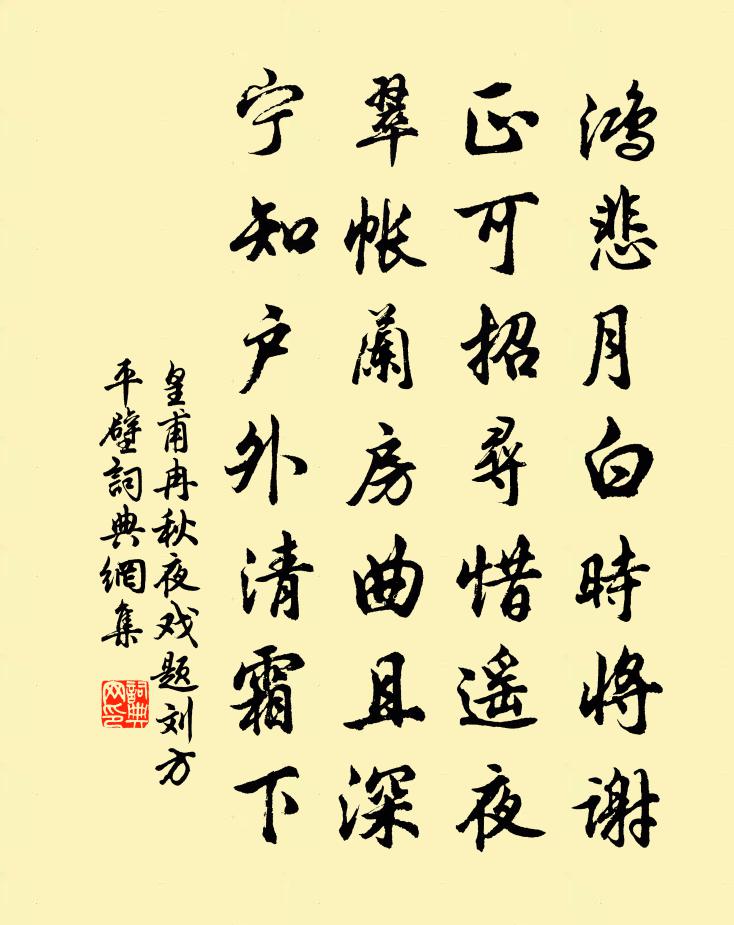 鸿悲月白時将谢
正可招尋惜遥夜
翠帐蘭房曲且深
宁知户外清霜下
皇甫冉秋夜戏题刘方
平壁詞典網集
詞典
网印